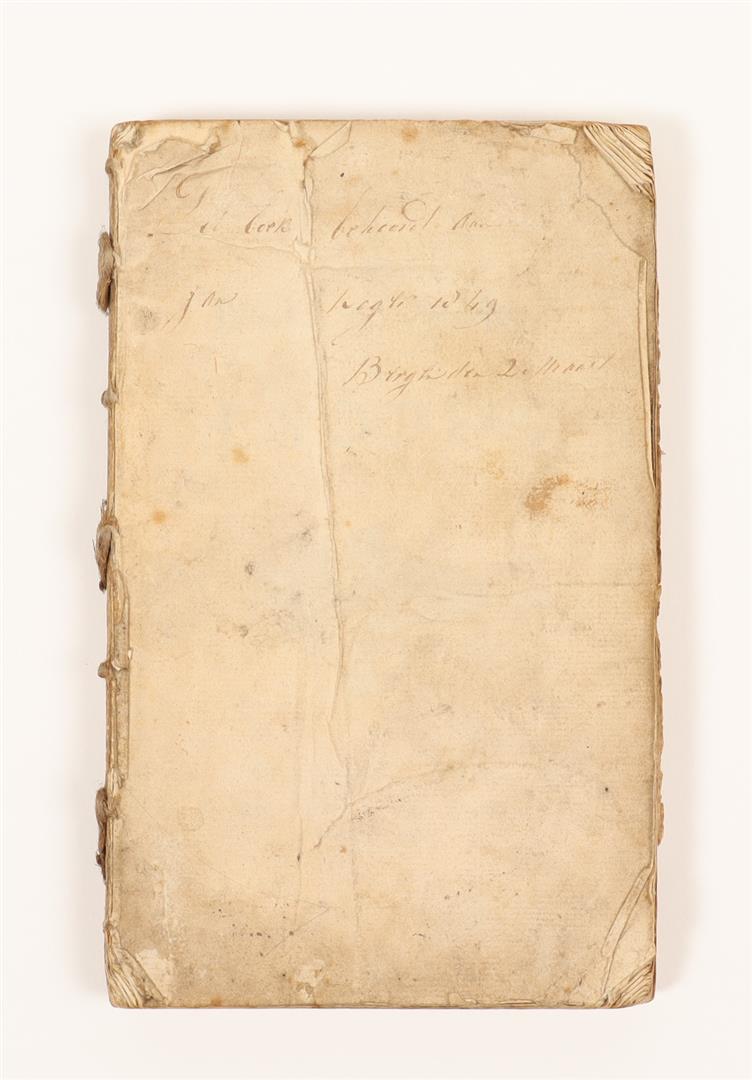 Dit boek behoordt aan
Jan 1849
Bergen den 2 Maart